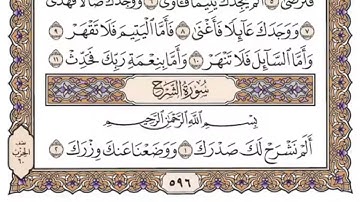 فَتَرْضَىٰٓ ٥ أَلَمْ يَجِدْكَ يَتِيمًا فَـَٔاوَىٰ ٦ وَوَجَدَكَ ضَآلًّا فَهَدَىٰ
٧ وَوَجَدَكَ عَآئِلًا فَأَغْنَىٰ ٨ فَأَمَّا ٱلْيَتِيمَ فَلَا تَقْهَرْ ٩
وَأَمَّا ٱلسَّآئِلَ فَلَا تَنْهَرْ ١٠ وَأَمَّا بِنِعْمَةِ رَبِّكَ فَحَدِّثْ ١١
سُورَةُ الشَّرْحِ
بِسْمِ ٱللَّهِ ٱلرَّحْمَٰنِ ٱلرَّحِيمِ
أَلَمْ نَشْرَحْ لَكَ صَدْرَكَ ١ وَوَضَعْنَا عَنكَ وِزْرَكَ ٢
نصف
الحزب
٦٠
٥٩٦